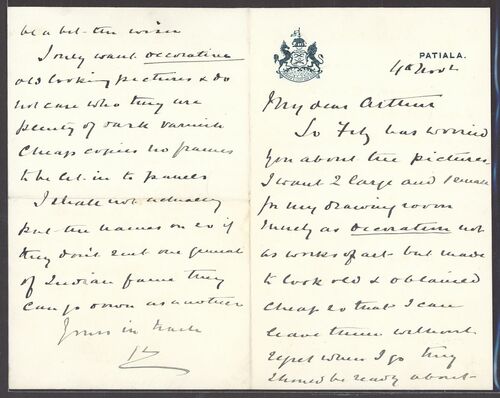 PATIALA.
4th Novr
My dear Arthur
So Fitz has worried
you about the pictures
I want 2 large and 1 small
for my drawing room
merely as decoration not
as works of art but made
to look old & obtained
cheap so that I can
leave them without
regret when I go they
should be ready about
be a bit the wiser
I only want decorative
old looking pictures & do
not care who they are
plenty of dark varnish
Cheap copies no frames
to be let in to panels
I shall not actually
put the names on so if
they don't suit one general
of Indian fame they
can go down as another
Yours in haste